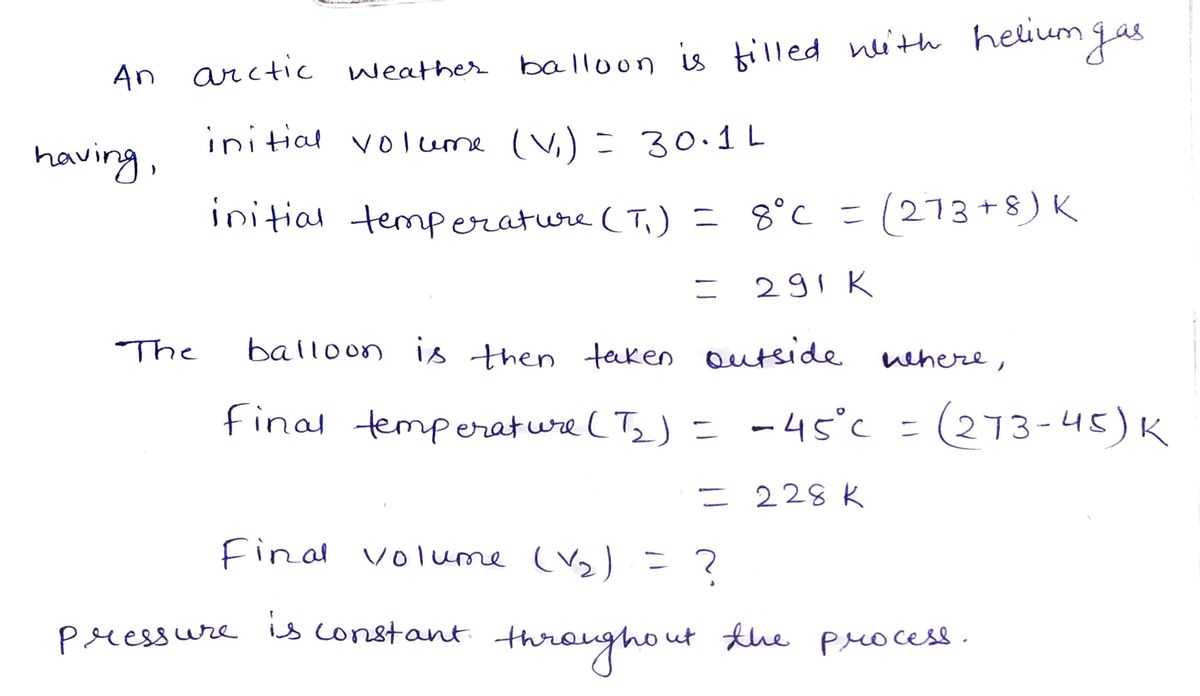 An arctic weather balloon is filled with helium gas
having, initial volume (V₁) = 30.1 L
initial temperature (T₁) = 8°C = (273+8) K
= 291 K
The balloon is then taken outside where,
final temperature (T₂) = -45°C = (273-45) K
= 228 K
Final volume (V₂) = ?
pressure is constant throughout the process.